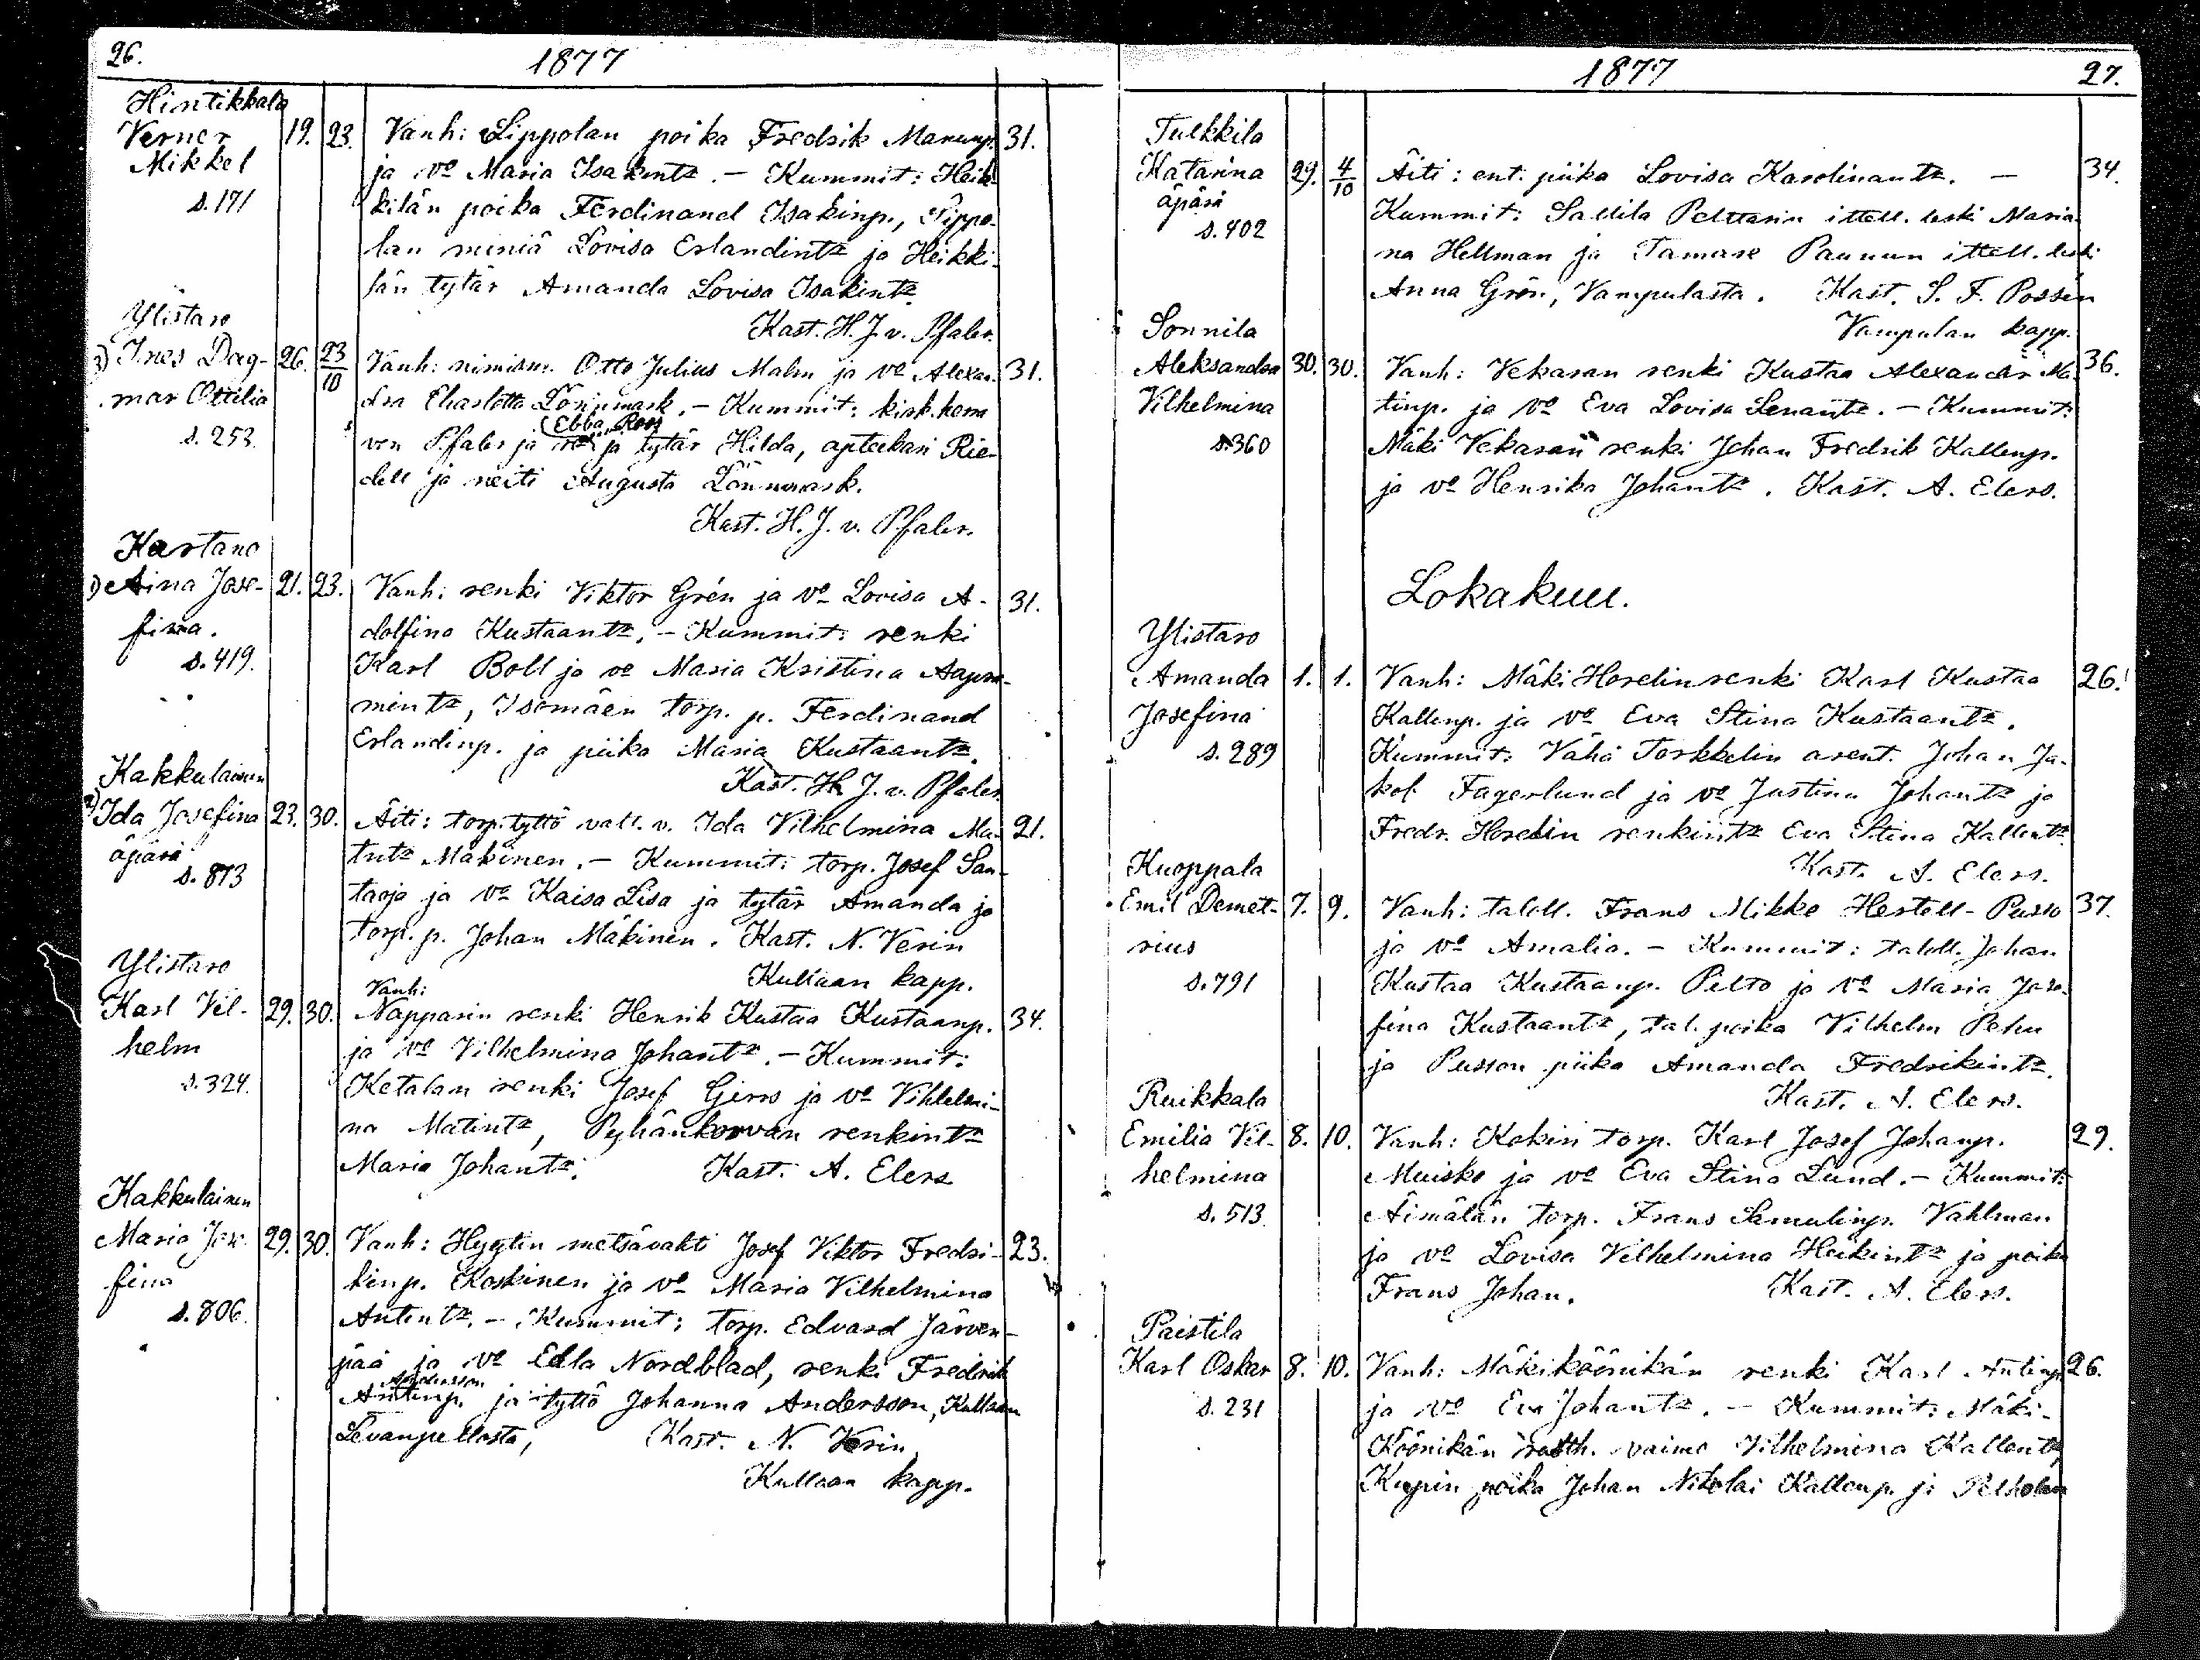 26.
1877
Hintikkala
Verner
Mikkel
s. 171
19. 23.
Vanh: Lippolan poika Fredrik Manunp.
31.
ja vo Maria Isakintr. – Kummit: Heik-
kilän poika Ferdinand Isakinp., Lippo-
lan miniä Lovisa Erlandintr ja Heikki-
län tytär Amanda Lovisa Isakintr.
Kast. H. J. v. Pfaler.
Ylistaro
3) Ines Dag-
mar Ottilia
s. 253.
26. 23/10
Vanh: nimism. Otto Julius Malm ja vo Alexan-
31.
dra Charlotta Lönnmark. – Kummit: kirk.herra
(Ebba Ross)
von Pfaler ja ro ja tytär Hilda, apteekari Rie-
dell ja neiti Augusta Lönnmark.
Kast. H. J. v. Pfaler.
Kartano
1) Aina Jose-
fina.
s. 419.
21. 23.
Vanh: renki Viktor Grén ja vo Lovisa A-
31.
dolfina Kustaantr. – Kummit: renki
Karl Boll ja vo Maria Kristina Aapra-
mintr, Isomäen torp. p. Ferdinand
Erlandinp. ja piika Maria Kustaantr.
Kast. H. J. v. Pfaler.
Kakkulainen
2) Ida Josefina
äpärä
s. 813
23. 30.
Äiti: torp.tyttö vall. v. Ida Vilhelmina Ma-
21.
tintr Mäkinen. – Kummit: torp. Josef San-
taoja ja vo Kaisa Lisa ja tytär Amanda ja
torp. p. Johan Mäkinen. Kast. N. Verin
Kullaan kapp.
Ylistaro
Karl Vil-
helm
s. 324.
29. 30.
Vanh:
Napparin renki Henrik Kustaa Kustaanp.
34.
ja vo Vilhelmina Johantr. – Kummit:
Ketalan renki Josef Girss ja vo Vihlelmi-
na Matintr, Pyhänkorvan renkintr
Maria Johantr. Kast. A. Elers
Kakkulainen
Maria Jose-
fina
s. 806.
29. 30.
Vanh: Hyytin metsävahti Josef Viktor Fredri-
23.
kinp. Koskinen ja vo Maria Vilhelmina
Antintr. – Kummit: torp. Edvard Järven-
pää ja vo Edla Nordblad, renki Fredrik
Andersson
Antinp. ja tyttö Johanna Andersson, Kullaan
Levanpellosta, Kast. N. Verin
Kullaan kapp.
1877
27.
Tulkkila
Katarina
äpärä
s. 402
29. 4/10
Äiti: ent. piika Lovisa Karolinantr. –
34.
Kummit: Sallila Pelttarin ittell. leski Maria-
na Hellman ja Tamare Paunun ittell. leski
Anna Grön, Vampulasta. Kast. S. F. Possén
Vampulan kapp.
Sonnila
Aleksandra
Vilhelmina
s. 360
30. 30.
Vanh: Vekaran renki Kustaa Alexander Ma-
36.
tinp. ja vo Eva Lovisa Lenantr. – Kummit:
Mäki Vekaran renki Johan Fredrik Kallenp.
ja vo Henrika Johantr. Kast. A. Elers.
Lokakuu.
Ylistaro
Amanda
Josefina
s. 289
1. 1.
Vanh: Mäki Horelin renki Karl Kustaa
26.
Kallenp. ja vo Eva Stina Kustaantr.
Kummit: Vähä Torkkelin arent. Johan Ja-
kob Fagerlund ja vo Justina Johantr ja
Fredr. Horelin renkintr Eva Stina Kallentr.
Kast. A. Elers.
Kuoppala
Emil Demet-
rius
s. 791
7. 9.
Vanh: taloll. Frans Mikko Hertell-Pusso
37.
ja vo Amalia. – Kummit: taloll. Johan
Kustaa Kustaanp. Pelto ja vo Maria Jose-
fina Kustaantr, tal. poika Vilhelm Pehu
ja Pusson piika Amanda Fredrikintr.
Kast. A. Elers.
Ruikkala
Emilia Vil-
helmina
s. 513.
8. 10.
Vanh: Kokin torp. Karl Josef Johanp.
29.
Muisko ja vo Eva Stina Lund. – Kummit:
Äimälän torp. Frans Samulinp. Vahlman
ja vo Lovisa Vilhelmina Heikintr ja poika
Frans Johan. Kast. A. Elers.
Paistila
Karl Oskar
s. 231
8. 10.
Vanh: Mäkiköönikän renki Karl Antinp.
26.
ja vo Eva Johantr. – Kummit: Mäki-
Köönikän vaimo Vilhelmina Kallentr,
Kupin poika Johan Nikolai Kallenp. ja Pelholan